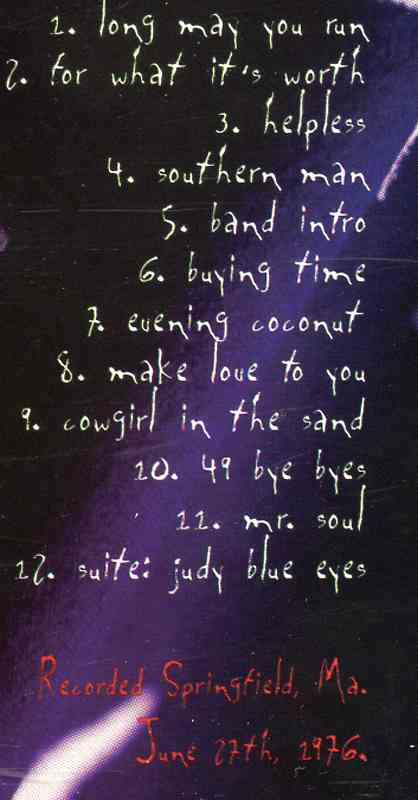 1. long may you run
2. for what it's worth
3. helpless
4. southern man
5. band intro
6. buying time
7. evening coconut
8. make love to you
9. cowgirl in the sand
10. 49 bye byes
11. mr. soul
12. suite: judy blue eyes
Recorded Springfield, Ma.
June 27th, 1976.